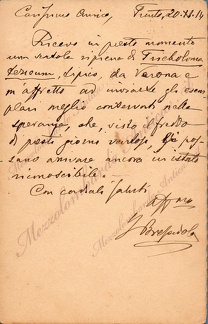 Carissimo Amico, Trento, 20.XI.14
Ricevo in questo momento
una scatola ripiena di Tricholoma
, tipico, da Verona e
m'affretto ad inviarle gli esem
plari meglio conservati nella
speranza, che, visto il freddo
di questi giorni
sano arrivare ancora in istato
riconoscibile.
Con cordiali saluti
affmo
G Bresadola